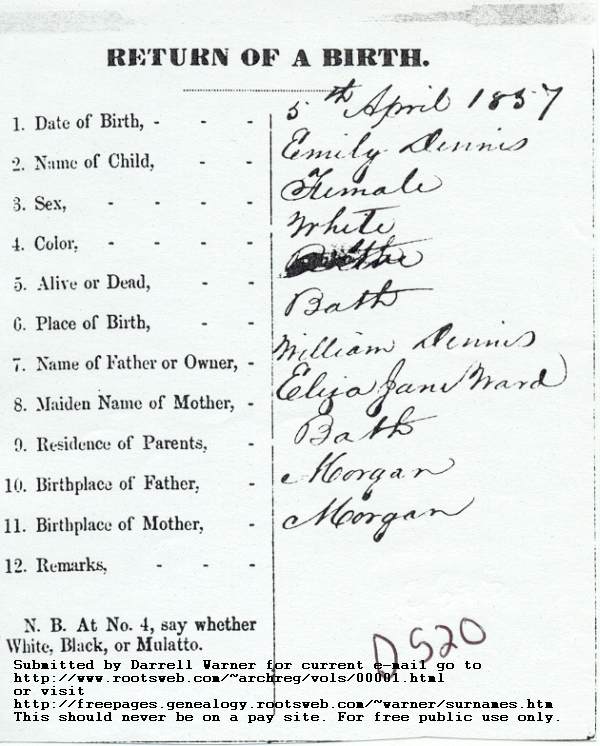 RETURN OF A BIRTH.
1. Date of Birth, - - - 5th April 1857
2. Name of Child, - - Emily Dennis
3. Sex, - - - - Female
4. Color, - - - - White
5. Alive or Dead, - -
6. Place of Birth, - - Bath
7. Name of Father or Owner, - William Dennis
8. Maiden Name of Mother, - Eliza Jane Ward
9. Residence of Parents, - Bath
10. Birthplace of Father, - Morgan
11. Birthplace of Mother, - Morgan
12. Remarks, - - -
N. B. At No. 4, say whether
White, Black, or Mulatto.
D520
Submitted by Darrell Warner for current e-mail go to
http://www.rootsweb.com/~archreg/vols/00001.html
or visit
http://freepages.genealogy.rootsweb.com/~warner/surnames.htm
This should never be on a pay site. For free public use only.